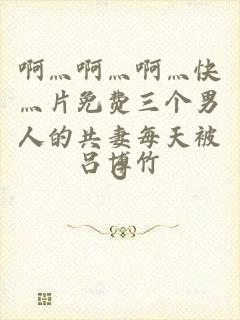 啊灬啊灬啊灬快
灬片免费三个男
人的共妻每天被
吕博竹